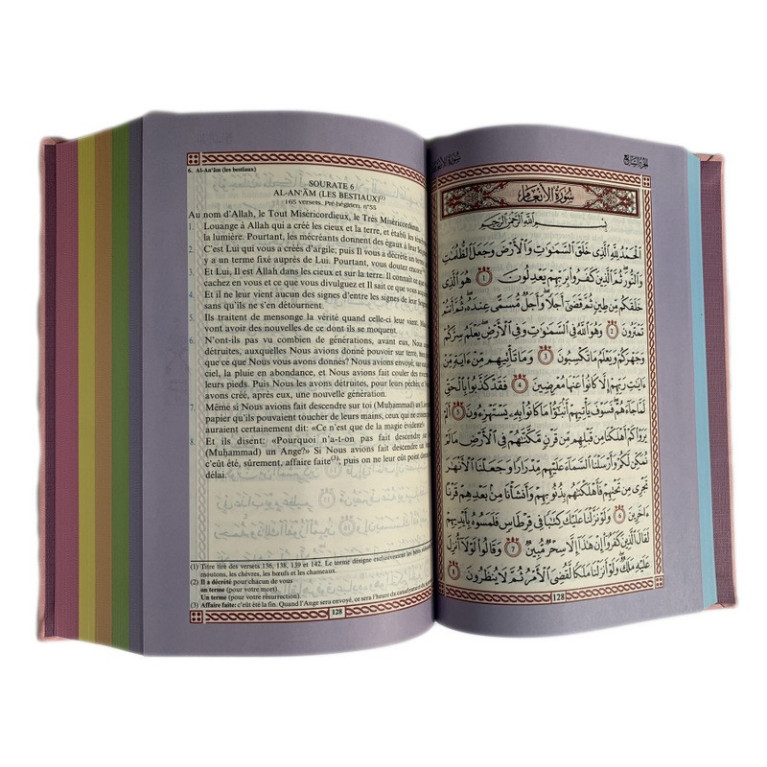 6. Al-An'ām (les bestiaux)
SOURATE 6
AL-AN'ĀM (LES BESTIAUX)(1)
165 versets, Pré-hégirien, n°55
Au nom d'Allah, le Tout Miséricordieux, le Très Miséricordieux.
1. Louange à Allah qui a créé les cieux et la terre, et établi les
la lumière. Pourtant, les mécréants donnent des égaux à leur
2. C'est Lui qui vous a créés d'argile; puis Il vous a décrété un
y a un terme fixé auprès de Lui. Pourtant, vous doutez encore!
3. Et Lui, Il est Allah dans les cieux et sur la terre. Il connaît ce
cachez en vous et ce que vous divulguez et Il sait ce que vous
4. Et il ne leur vient aucun des signes d'entre les signes de leur
sans qu'ils ne s'en détournent.
5. Ils traitent de mensonge la vérité quand celle-ci leur vient.
vont avoir des nouvelles de ce dont ils se moquent.
6. N'ont-ils pas vu combien de générations, avant eux, Nous
détruites, auxquelles Nous avions donné pouvoir sur terre,
que ce que Nous vous avons donné? Nous avions envoyé, sur
ciel, la pluie en abondance, et Nous avions fait couler des
leurs pieds. Puis Nous les avons détruites, pour leurs péchés,
avons créé, après eux, une nouvelle génération.
7. Même si Nous avions fait descendre sur toi (Muḥammad) un
papier qu'ils pouvaient toucher de leurs mains, ceux qui ne
auraient certainement dit: «Ce n'est que de la magie évidente!
8. Et ils disent: «Pourquoi n'a-t-on pas fait descendre sur
(Muḥammad) un Ange?» Si Nous avions fait descendre
c'eût été, sûrement, affaire faite(3); puis on ne leur eût point
délai.
(1) Titre tiré des versets 136, 138, 139 et 142. Le terme désigne exclusivement les bêtes
moutons, les chèvres, les bœufs et les chameaux.
(2) Il a décrété pour chacun de vous
un terme (pour votre mort)
Un terme (pour votre résurrection).
(3) Affaire faite: c'eût été la fin. Quand l'Ange sera envoyé, ce sera l'heure du
128
سُورَةُ الأَنْعَام
الجزء السابع
سُورَةُ الأَنْعَام
بِسْمِ اللَّهِ الرَّحْمَٰنِ الرَّحِيمِ
الْحَمْدُ لِلَّهِ الَّذِي خَلَقَ السَّمَٰوَٰتِ وَالْأَرْضَ وَجَعَلَ الظُّلُمَٰتِ
وَالنُّورَ ثُمَّ الَّذِينَ كَفَرُوا بِرَبِّهِمْ يَعْدِلُونَ ١ هُوَ الَّذِي
خَلَقَكُم مِّن طِينٍ ثُمَّ قَضَىٰ أَجَلًا وَأَجَلٌ مُّسَمًّى عِندَهُ ثُمَّ أَنتُمْ
تَمْتَرُونَ ٢ وَهُوَ اللَّهُ فِي السَّمَٰوَٰتِ وَفِي الْأَرْضِ يَعْلَمُ سِرَّكُمْ
وَجَهْرَكُمْ وَيَعْلَمُ مَا تَكْسِبُونَ ٣ وَمَا تَأْتِيهِم مِّنْ ءَايَةٍ مِّنْ
ءَايَٰتِ رَبِّهِمْ إِلَّا كَانُوا عَنْهَا مُعْرِضِينَ ٤ فَقَدْ كَذَّبُوا بِالْحَقِّ
لَمَّا جَاءَهُمْ فَسَوْفَ يَأْتِيهِمْ أَنبَٰؤُا مَا كَانُوا بِهِ يَسْتَهْزِءُونَ ٥ أَلَمْ
يَرَوْا كَمْ أَهْلَكْنَا مِن قَبْلِهِم مِّن قَرْنٍ مَّكَّنَّٰهُمْ فِي الْأَرْضِ مَا لَمْ
نُمَكِّن لَّكُمْ وَأَرْسَلْنَا السَّمَاءَ عَلَيْهِم مِّدْرَارًا وَجَعَلْنَا الْأَنْهَٰرَ
تَجْرِي مِن تَحْتِهِمْ فَأَهْلَكْنَٰهُم بِذُنُوبِهِمْ وَأَنشَأْنَا مِن بَعْدِهِمْ قَرْنًا
ءَاخَرِينَ ٦ وَلَوْ نَزَّلْنَا عَلَيْكَ كِتَٰبًا فِي قِرْطَاسٍ فَلَمَسُوهُ بِأَيْدِيهِمْ
لَقَالَ الَّذِينَ كَفَرُوا إِنْ هَٰذَا إِلَّا سِحْرٌ مُّبِينٌ ٧ وَقَالُوا لَوْلَا أُنزِلَ
عَلَيْهِ مَلَكٌ وَلَوْ أَنزَلْنَا مَلَكًا لَّقُضِيَ الْأَمْرُ ثُمَّ لَا يُنظَرُونَ ٨
128